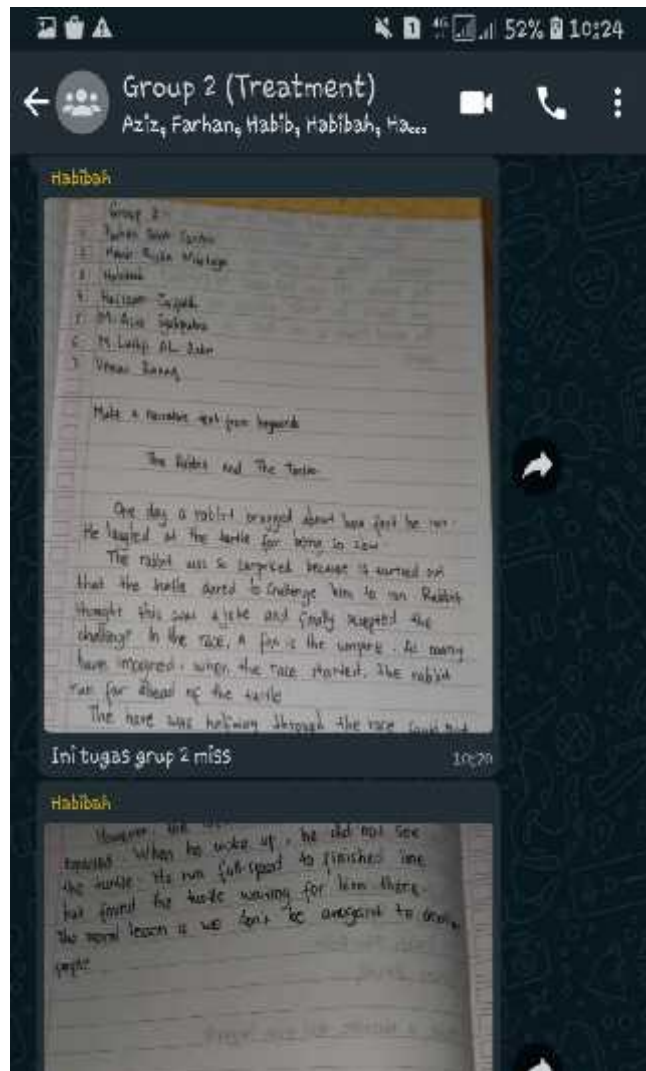 1 4G 52% 10:24
Group 2 (Treatment)
Aziz, Farhan, Habib, Habibah, Ha...
Habibah
Group 2
1
2
3 Habibah
4
5 M. Aziz
6 M.
7
Make a narrative text from keywords
The and The
One day a rabbit bragged about how fast he run.
He laughed at the turtle for being so
The rabbit was so surprised because it turned out
that the turtle dared to him to run Rabbit
thought this was a joke and finally accepted the
challenge In the race, a fox is the umpire. As many
have imagined, when the race started, the rabbit
run far ahead of the turtle
The hare was halfway through the race
Ini tugas grup 2 miss
10:20
Habibah
However,
When he woke up, he did not see
the turtle. He run full-speed to finished line
but found the turtle waiting for him there.
The moral lesson is we don't be arrogant to
people